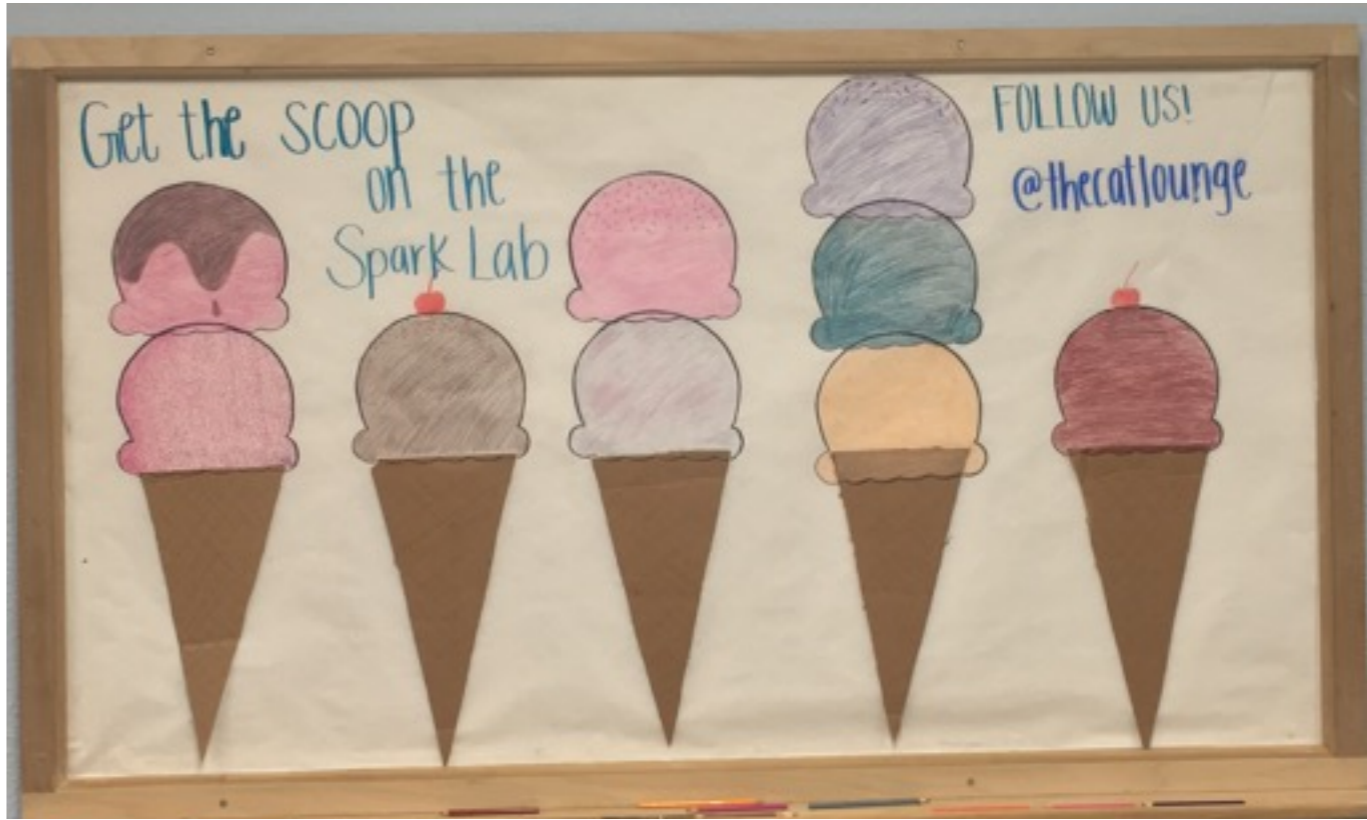 Get the SCOOP
on the
Spark Lab
FOLLOW US!
@thecatlounge